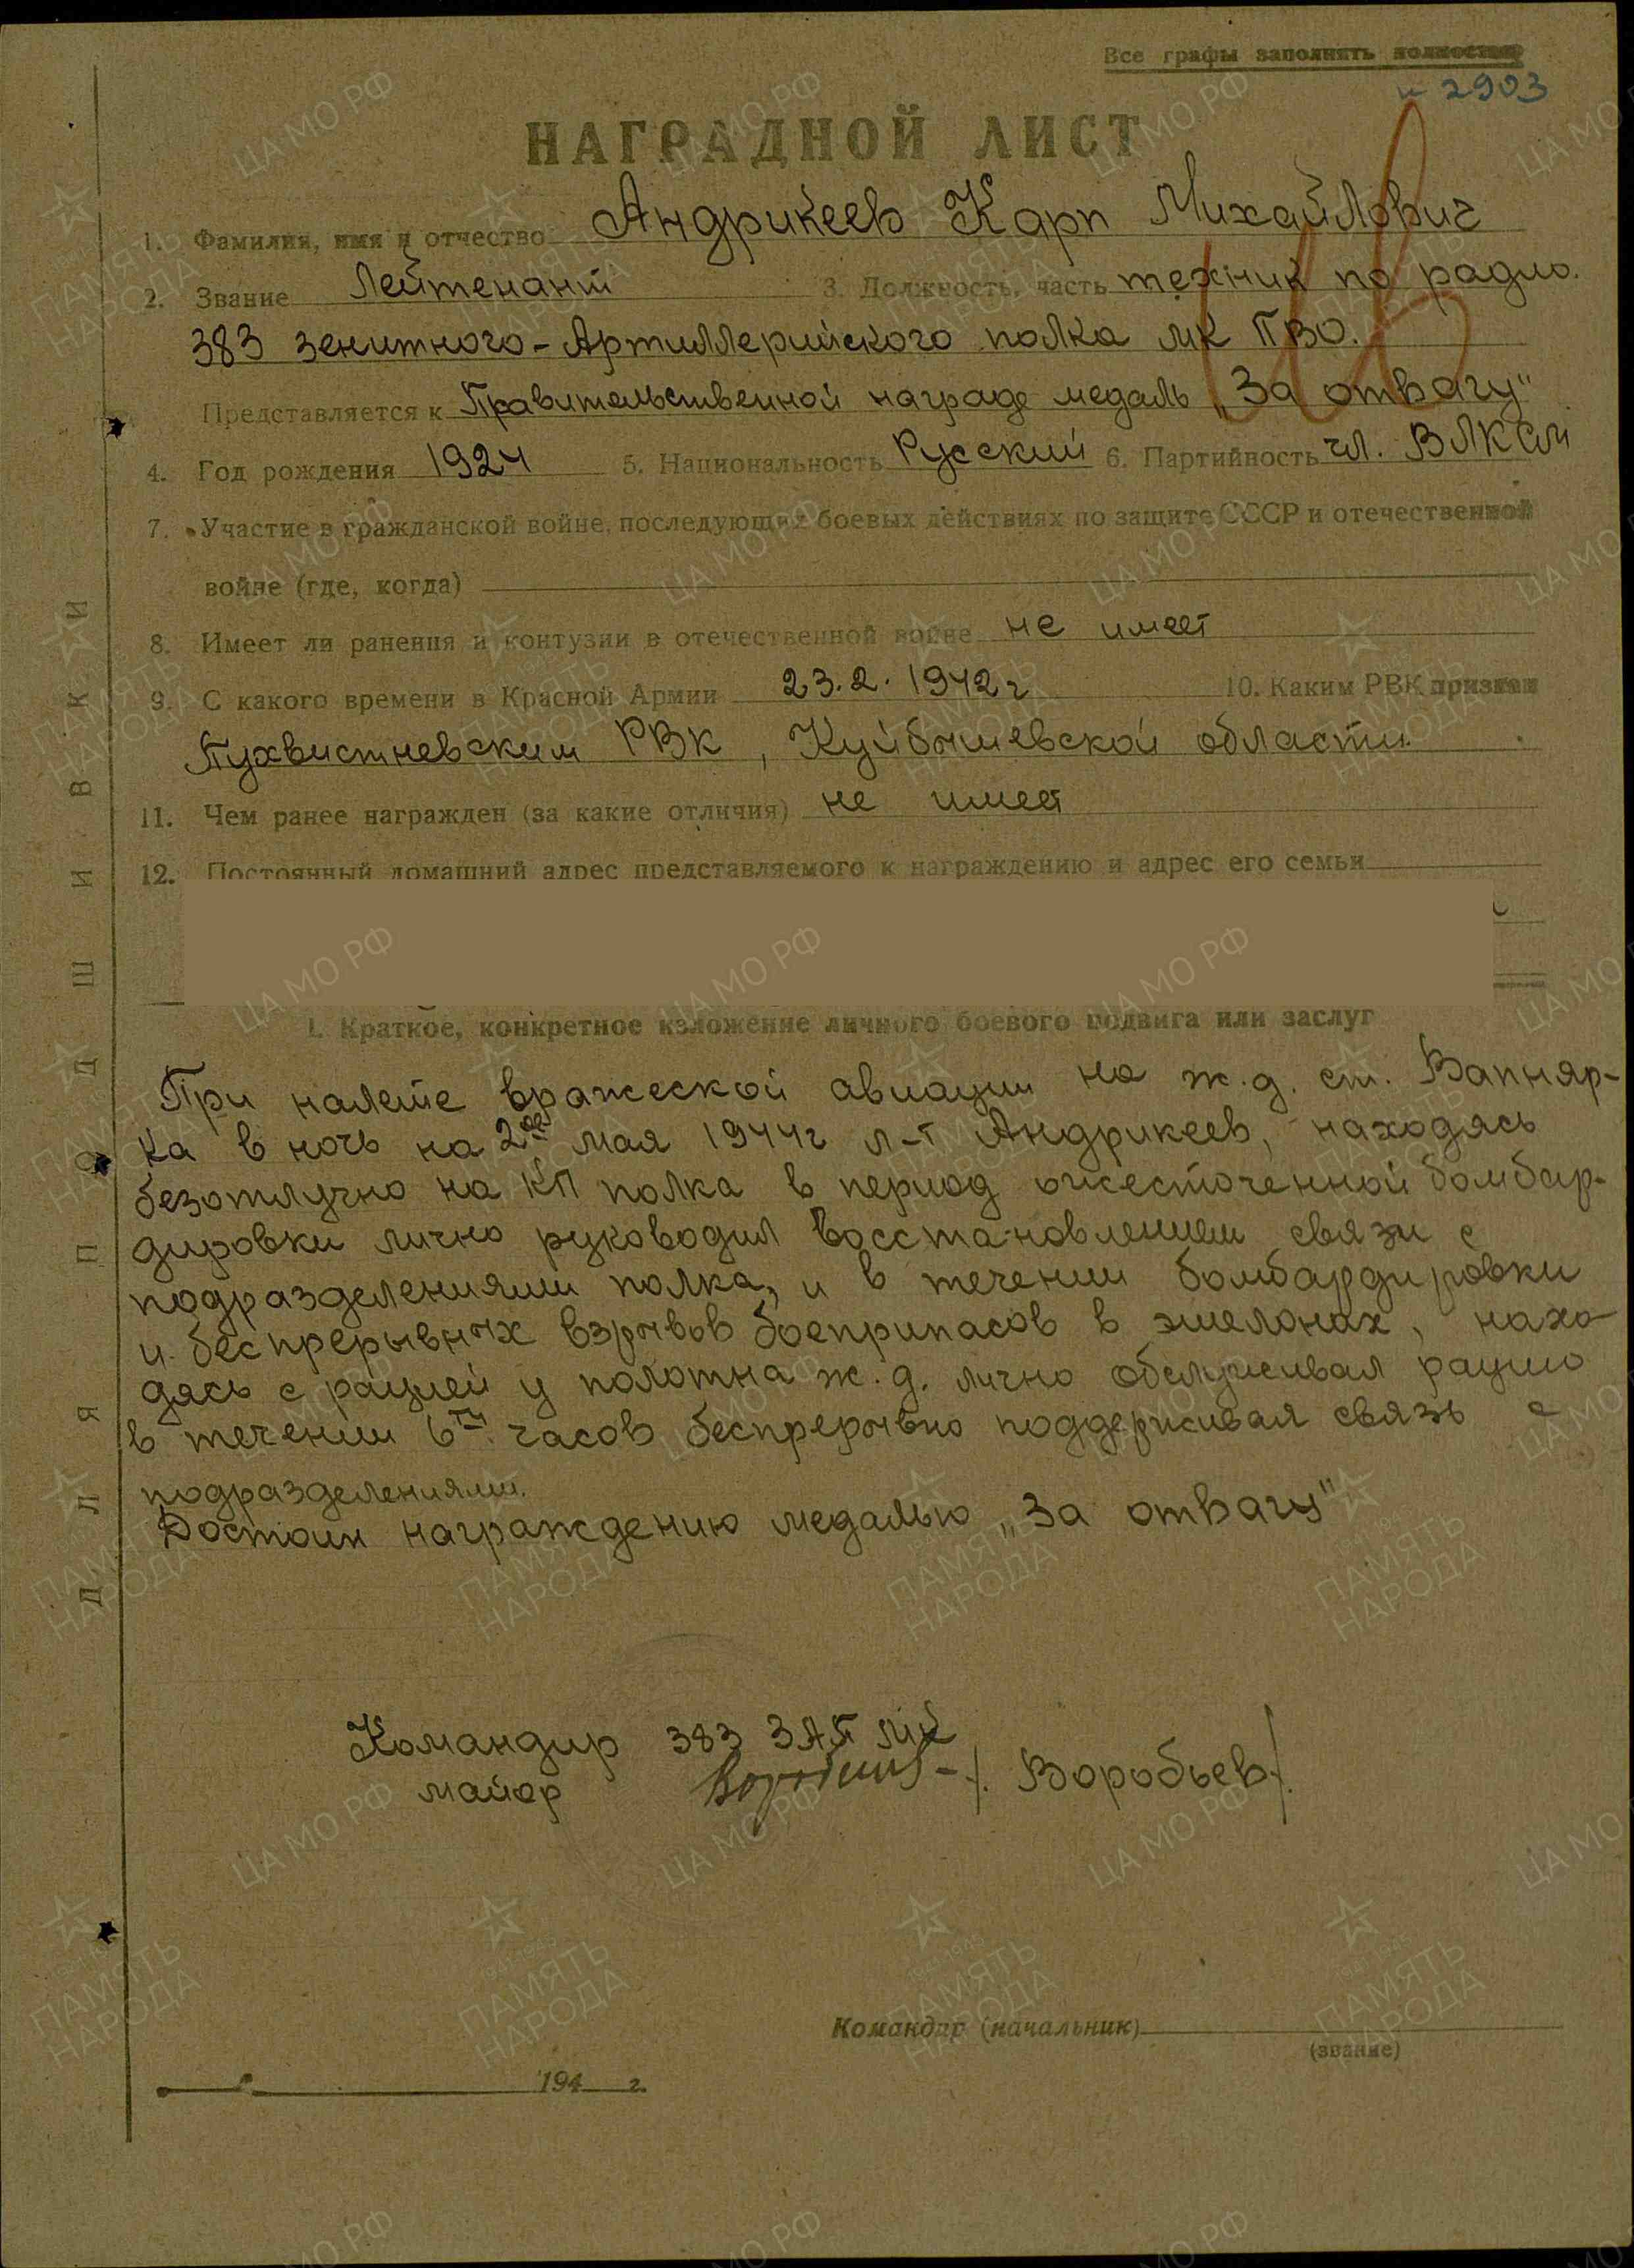 Все графы заполнять полностью
2903
НАГРАДНОЙ ЛИСТ
1. Фамилия, имя и отчество Андрикеев Карп Михайлович
2. Звание Лейтенант 3. Должность, часть техник по радио.
383 зенитного-Артиллерийского полка МК ПВО.
Представляется к Правительственной награде медаль „За отвагу"
4. Год рождения 1924 5. Национальность Русский 6. Партийность чл. ВЛКСМ
7. Участие в гражданской войне, последующих боевых действиях по защите СССР и отечественной
войне (где, когда)
8. Имеет ли ранения и контузии в отечественной войне не имеет
9. С какого времени в Красной Армии 23.2.1942г 10. Каким РВК призван
Пухвистневским РВК, Куйбышевской области.
11. Чем ранее награжден (за какие отличия) не имеет
12. Постоянный домашний адрес представляемого к награждению и адрес его семьи
I. Краткое, конкретное изложение личного боевого подвига или заслуг
При налете вражеской авиации на ж.д. ст. Вапняр-
ка в ночь на 2ое мая 1944г л-т Андрикеев, находясь
безотлучно на КП полка в период ожесточенной бомбар-
дировки лично руководил восстановлением связи с
подразделениями полка, и в течении бомбардировки
и беспрерывных взрывов боеприпасов в эшелонах, нахо-
дясь с рацией у полотна ж.д. лично обслуживал рацию
в течении 6ти часов беспрерывно поддерживая связь с
подразделениями.
Достоин награждению медалью „За отвагу"
Командир 383 ЗАП МК
майор /. Воробьев/.
Командир (начальник)
(звание)
194 г.
ДЛЯ ПОДШИВКИ
ЦА МО РФ
ПАМЯТЬ НАРОДА